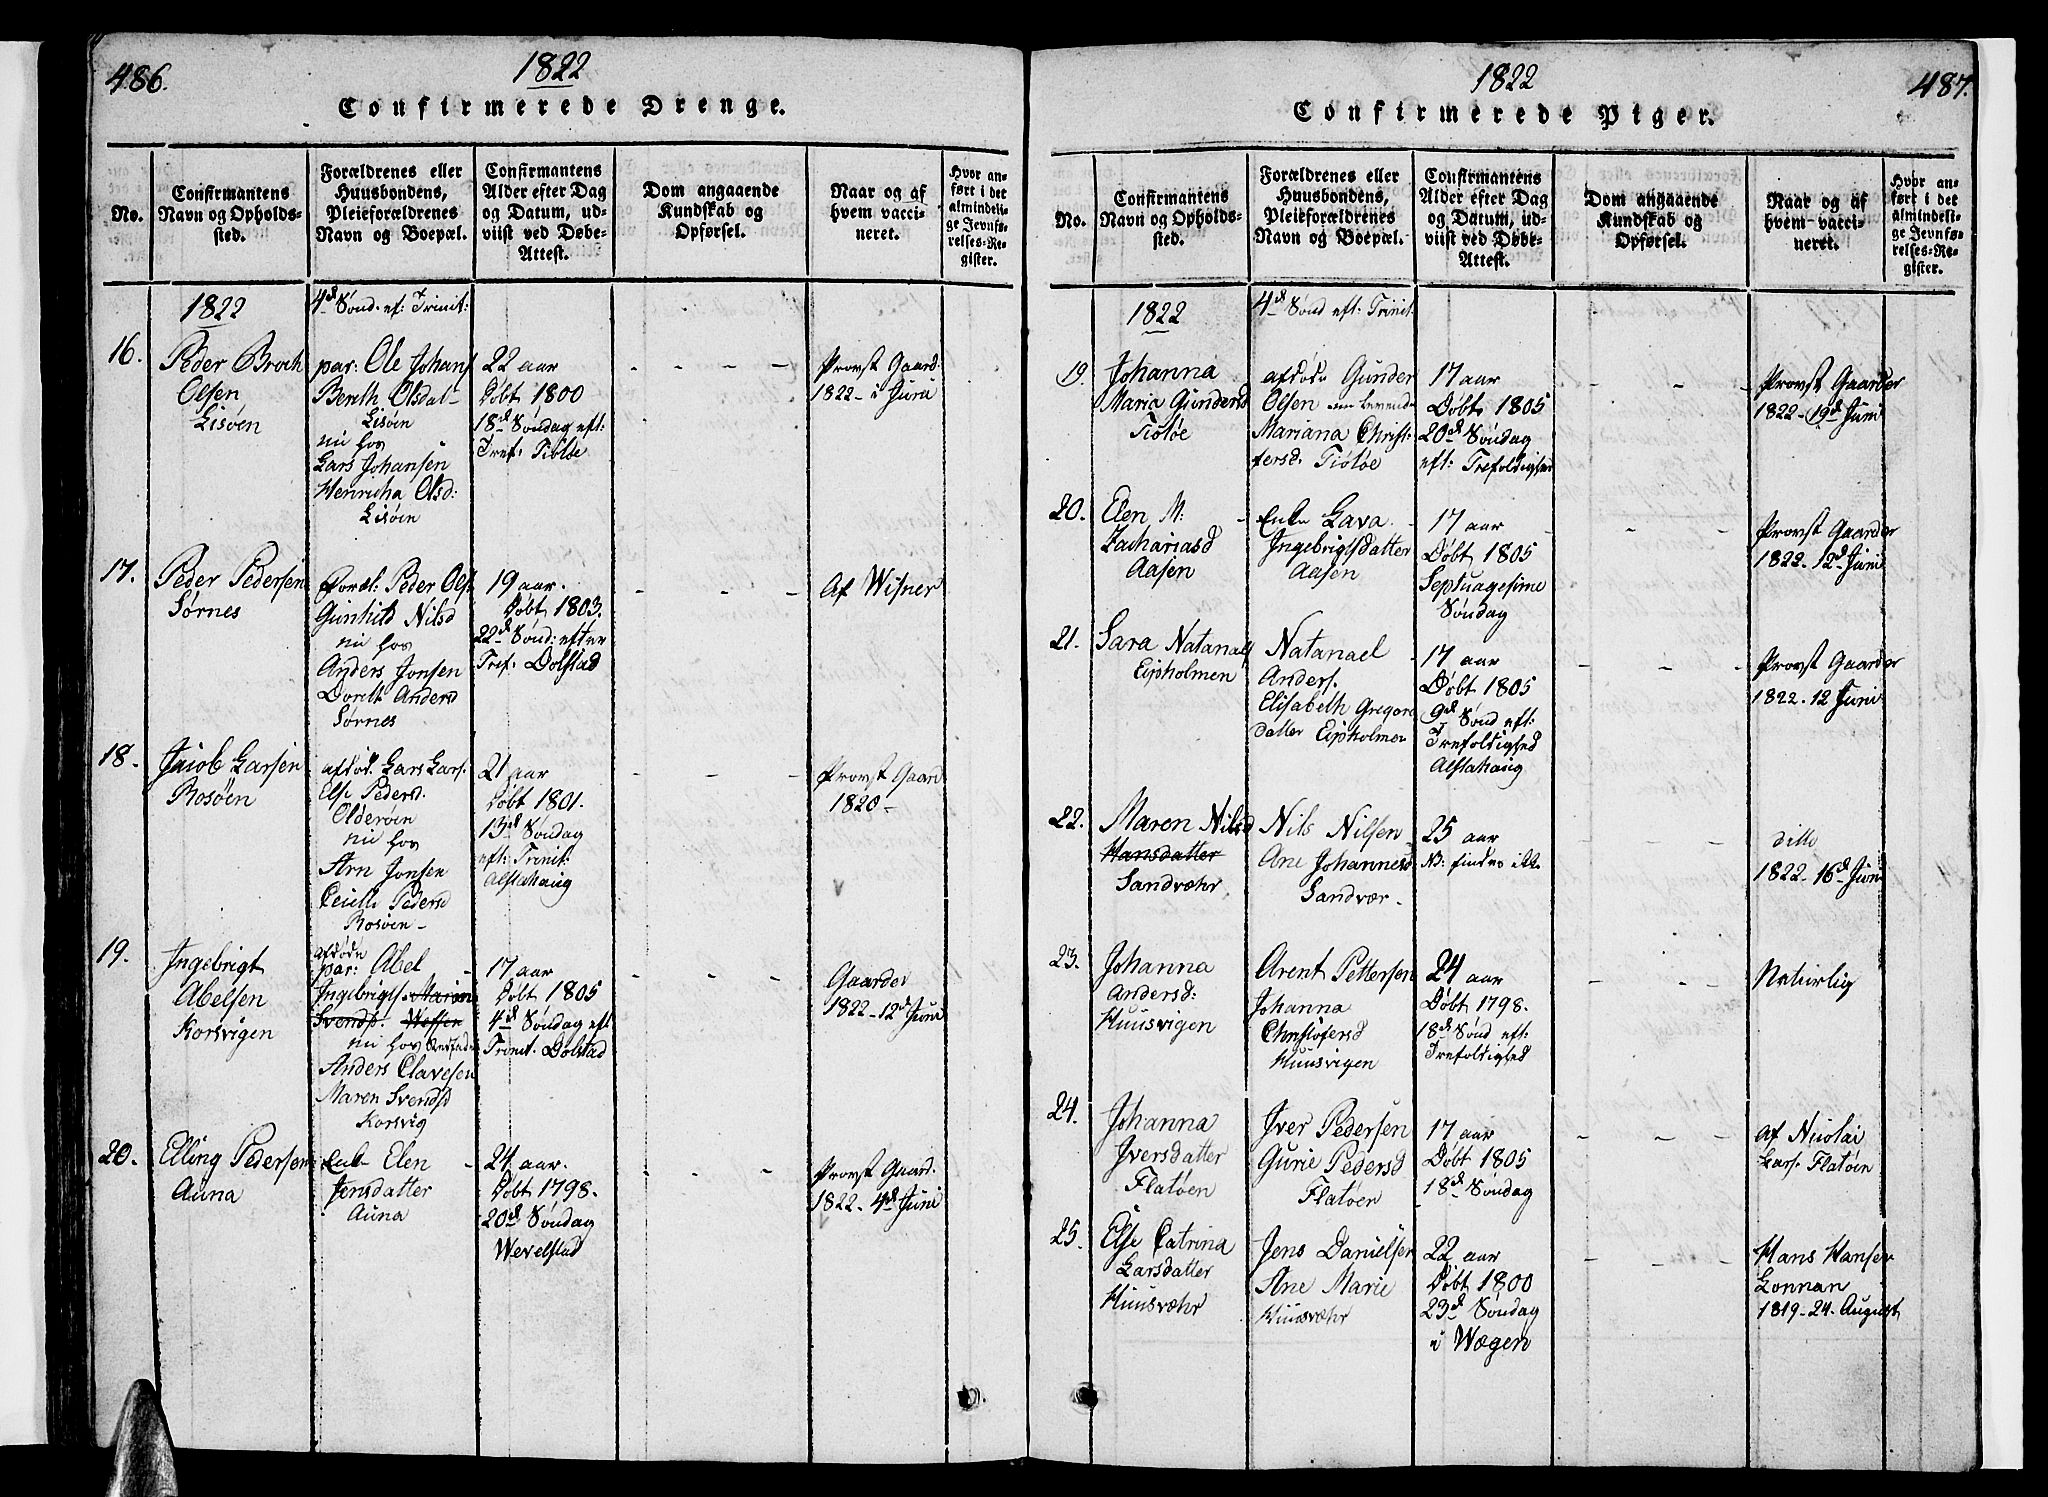 486.
1822
Confirmerede Drenge.
No.
Confirmantens
Navn og Opholds-
sted.
Forældrenes eller
Huusbondens,
Pleieforældrenes
Navn og Boepæl.
Confirmantens
Alder efter Dag
og Datum, ud-
viist ved Døbe-
Attest.
Dom angaaende
Kundskab og
Opførsel.
Naar og af
hvem vacci-
neret.
Hvor an-
ført i det
almindeli-
ge Jevnfø-
relses-Re-
gister.
1822
4d Sønd. ef: Trinit:
16.
Peder Broch
Olsen
Lisøen
par: Ole Johans
Bereth Olsdat-
Lisøen
nu hos
Lars Johansen
Henricha Olsd:
Lisøen
22 aar
Døbt 1800
18d Søndag eft:
Tref: Tiötöe
Provst Gaard.
1822 - i Juni
17.
Peder Pedersen
Sørnes
foræl: Peder Ols.
Gunhild Nilsd
nu hos
Anders Jonsen
Dorith Andersd
Sørnes
19 aar.
Døbt 1803.
22d Sønd: efter
Tref: Dolstad
Af Wisner
18.
Jacob Larsen
Rosøen
afdød. Lars Lars.
Else Pedersd.
Olderøen
nu hos
Arn Jonsen
Cicille Pedersd
Rosøen -
21 aar
Døbt 1801.
13d Søndag
eft: Trinit:
Alstahaug
Provst Gaard
1820 -
19.
Ingebrigt
Abelsen
Korsvigen
afdøde
par: Abel
Ingebrigts. Maren
Svendsd. Wefsen
nu hos
Anders Clavesen
Maren Svendsd
Korsvig
17 aar
Døbt 1805
4d Søndag eft
Trinit. Dolstad
Gaarder
1822 - 12d Juni
20.
Elling Pedersen
Auna
Enk- Elen
Jensdatter
Auna
24 aar.
Døbt 1798.
20d Søndag
Wevelstad
Provst Gaard.
1822. 4d Juni
487.
1822
Confirmerede Piger.
No.
Confirmantens
Navn og Opholds-
sted.
Forældrenes eller
Huusbondens,
Pleieforældrenes
Navn og Boepæl.
Confirmantens
Alder efter Dag
og Datum, ud-
viist ved Døbe-
Attest.
Dom angaaende
Kundskab og
Opførsel.
Naar og af
hvem vacci-
neret.
Hvor an-
ført i det
almindeli-
ge Jevnfø-
relses-Re-
gister.
1822
4d Sønd eft: Trinit.
19.
Johanna
Maria Gundersd
Tiötöe
afdøde Gunder
Olsen
Mariana Christ-
fersd: Tiötöe
17 aar
Døbt 1805
20d Søndag
eft: Trefoldighed
Provst Gaarder
1822 - 19d Juni
20.
Elen M:
Zachariasd
Aasen
Enk- Lava
Ingebrigtsdatter
Aasen
17 aar
Døbt 1805
Septuagesime
Søndag
Provst Gaarder
1822. 12d Juni
21.
Sara Natanaels
Eipholmen
Natanael
Anders.
Elisabeth Gregori
datter Eipholmen
17 aar
Døbt 1805
9d Sønd eft:
Trefoldighed
Alstahaug
Provst Gaarder
1822. 12 Juni
22.
Maren Nilsd
Hansdatter
Sandvæhr
Nils Nilsen
Ane Johannesd
Sandvær -
25 aar
NB: findes ikke
ditto
1822. 16d Juni
23.
Johanna
Andersd:
Huusvigen
Arent Pettersen
Johanna
Christofersd
Huusvigen
24 aar
Døbt 1798.
18d Sønd eft:
Trefoldighed
Naturlig
24.
Johanna
Iversdatter
Flatøen
Iver Pedersen
Gurie Pedersd
Flatøen
17 aar
Døbt 1805
18d Søndag
af Nicolai
Lars. Flatøen
25.
Else Catrina
Larsdatter
Huusvæhr
Jens Danielsen
Ane Marie
Huusvæhr
22 aar
Døbt 1800
23d Søndag
i Wægen
Hans Hansen
Lonnan
1819 - 24. August